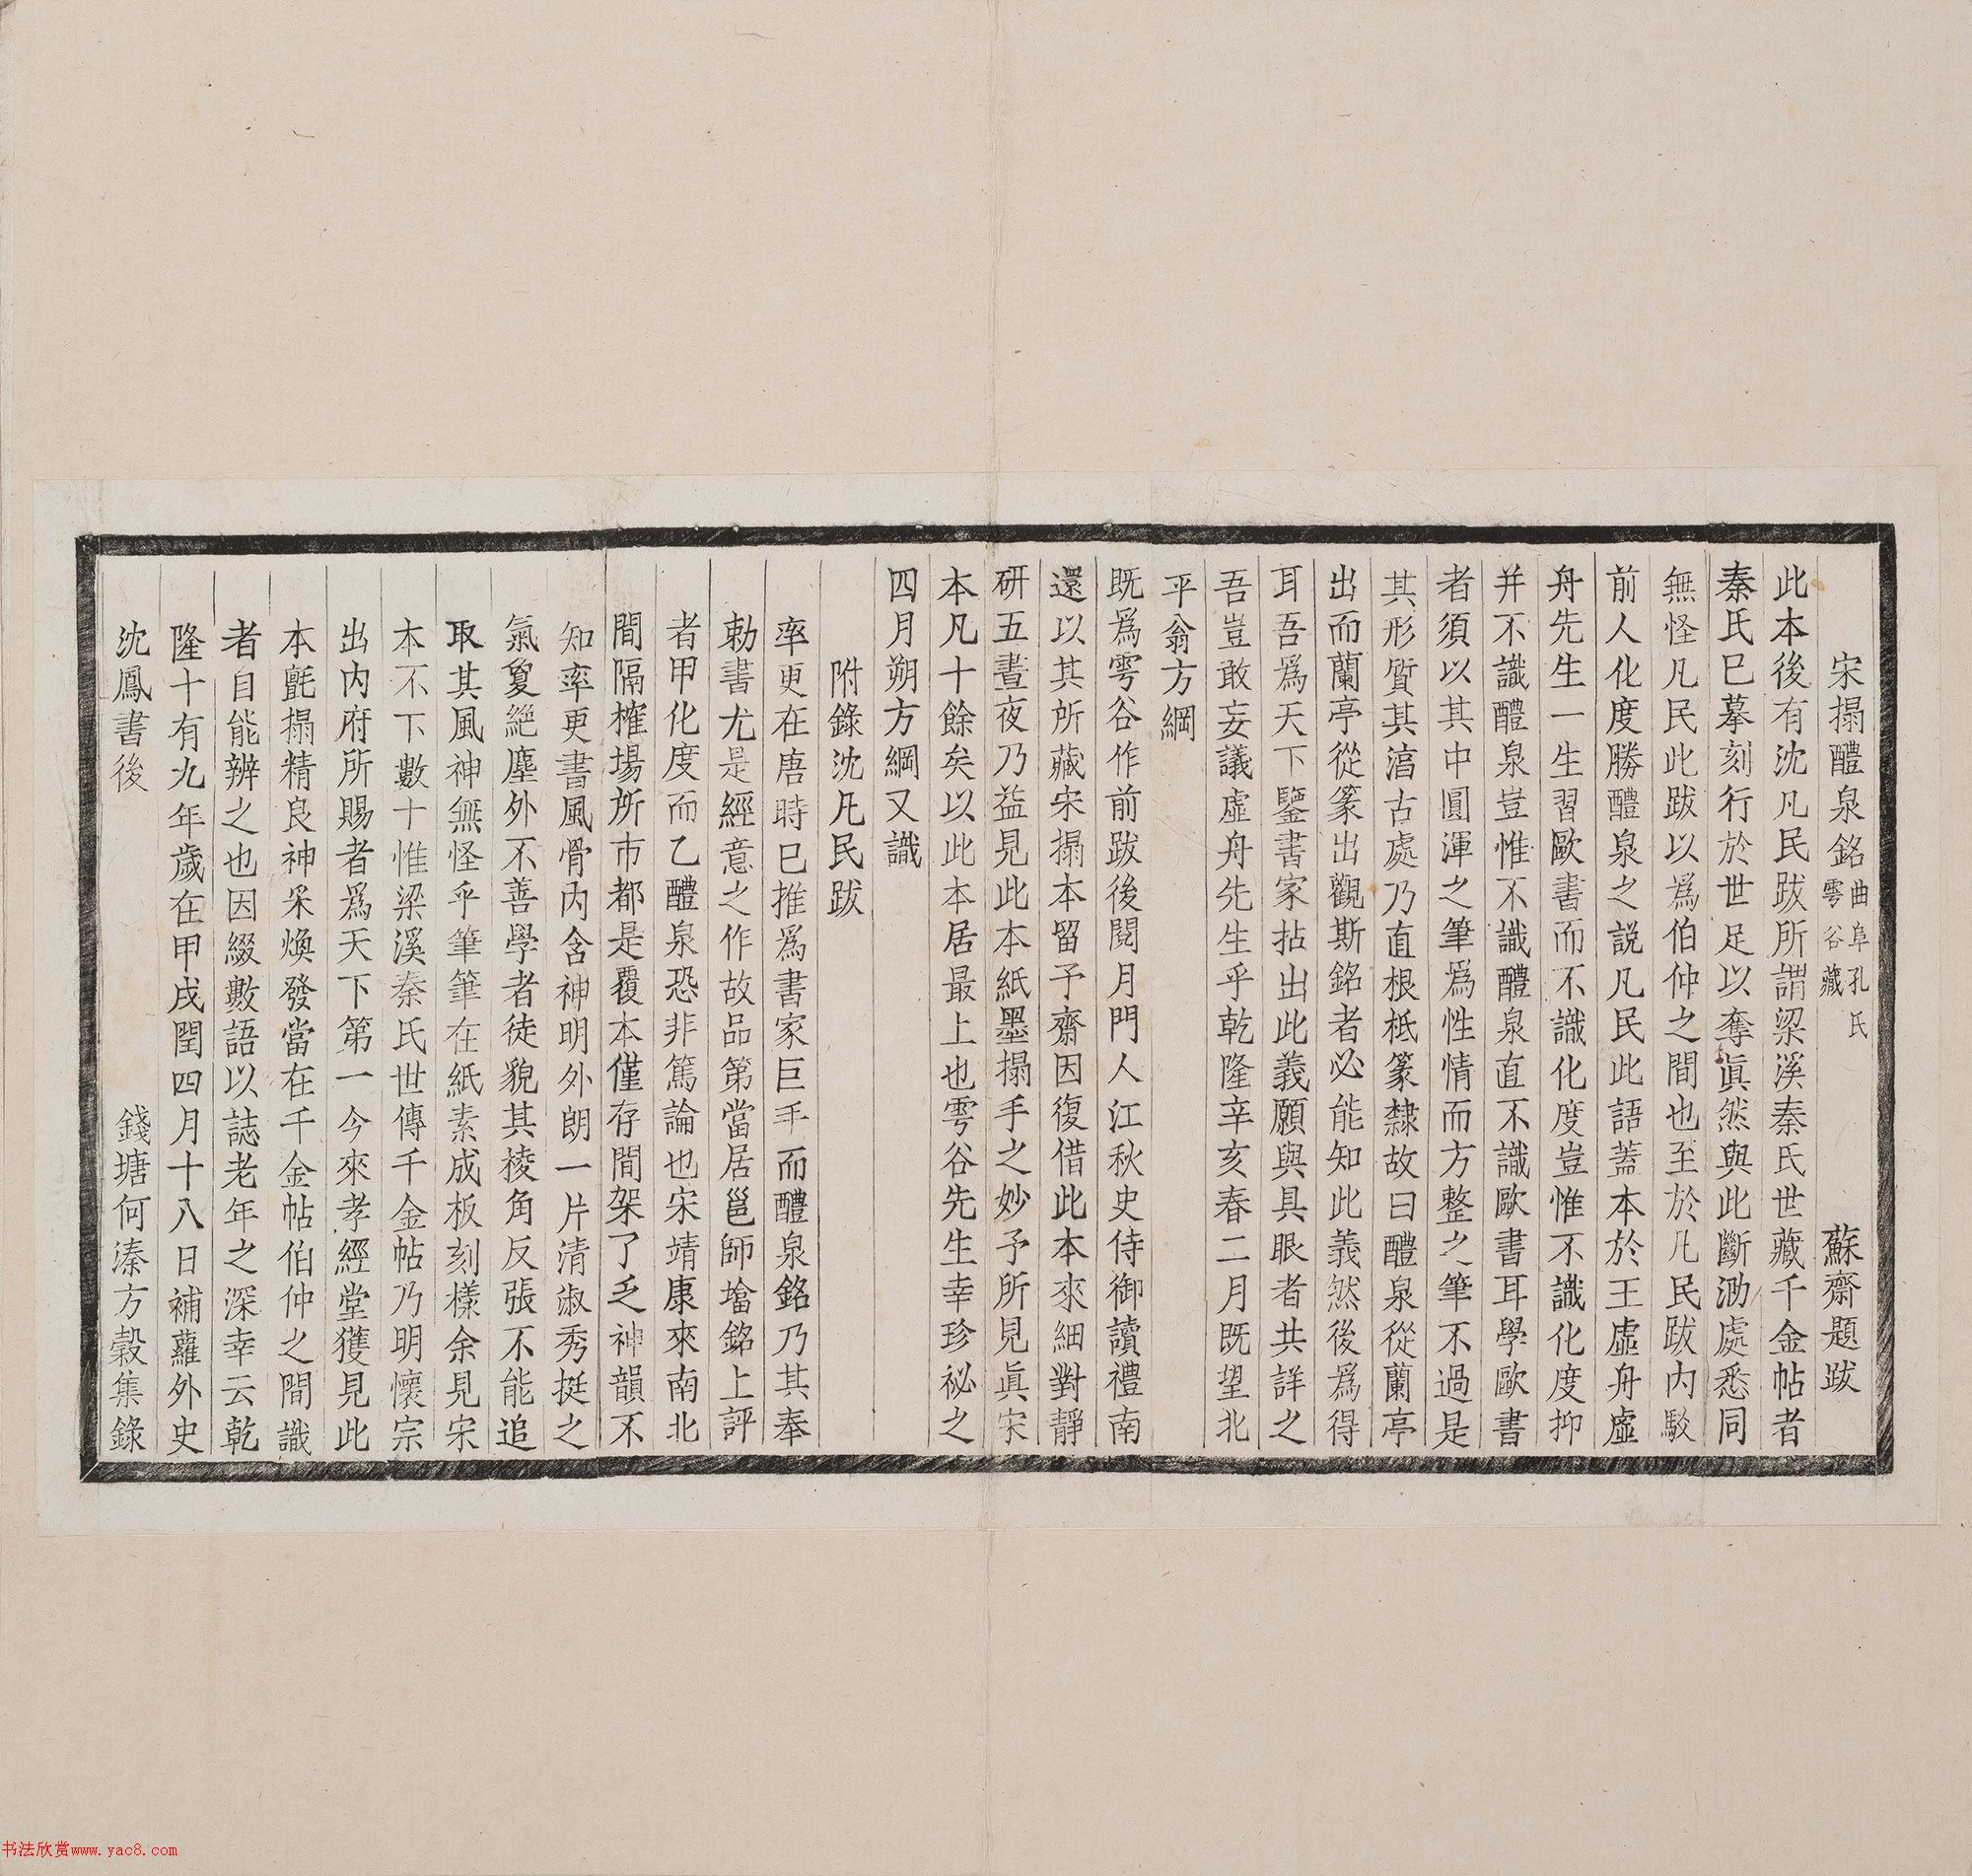 宋搨醴泉銘曲阜孔氏雩谷藏　蘇齋題跋
此本後有沈凡民跋所謂梁溪秦氏世藏千金帖者
秦氏已摹刻行於世足以奪眞然與此斷泐處悉同
無怪凡民此跋以爲伯仲之間也至於凡民跋內駁
前人化度勝醴泉之說凡民此語蓋本於王虛舟虛
舟先生一生習歐書而不識化度豈惟不識化度抑
并不識醴泉豈惟不識醴泉直不識歐書耳學歐書
者須以其中圓渾之筆爲性情而方整之筆不過是
其形質其淊古處乃直根柢篆隸故曰醴泉從蘭亭
出而蘭亭從篆出觀斯銘者必能知此義然後爲得
耳吾爲天下鑒書家拈出此義願與具眼者共詳之
吾豈敢妄議虛舟先生乎乾隆辛亥春二月既望北
平翁方綱
既爲雩谷作前跋後閱月門人江秋史侍御讀禮南
還以其所藏宋搨本留予齋因復借此本來細對靜
研五晝夜乃益見此本紙墨搨手之妙予所見眞宋
本凡十餘矣以此本居最上也雩谷先生幸珍祕之
四月朔方綱又識
附錄沈凡民跋
率更在唐時已推爲書家巨手而醴泉銘乃其奉
勅書尤是經意之作故品第當居邕師墖銘上評
者甲化度而乙醴泉恐非篤論也宋靖康來南北
間隔榷場所市都是覆本僅存間架了乏神韻不
知率更書風骨內含神明外朗一片清淑秀挺之
氣夐絕塵外不善學者徒貌其棱角反張不能追
取其風神無怪乎筆筆在紙素成板刻樣余見宋
本不下數十惟梁溪秦氏世傳千金帖乃明懷宗
出內府所賜者爲天下第一今來孝經堂獲見此
本氈搨精良神采煥發當在千金帖伯仲之間識
者自能辨之也因綴數語以誌老年之深幸云乾
隆十有九年歲在甲戌閏四月十八日補蘿外史
沈鳳書後　錢塘何溱方榖集錄
书法欣赏www.yac8.com